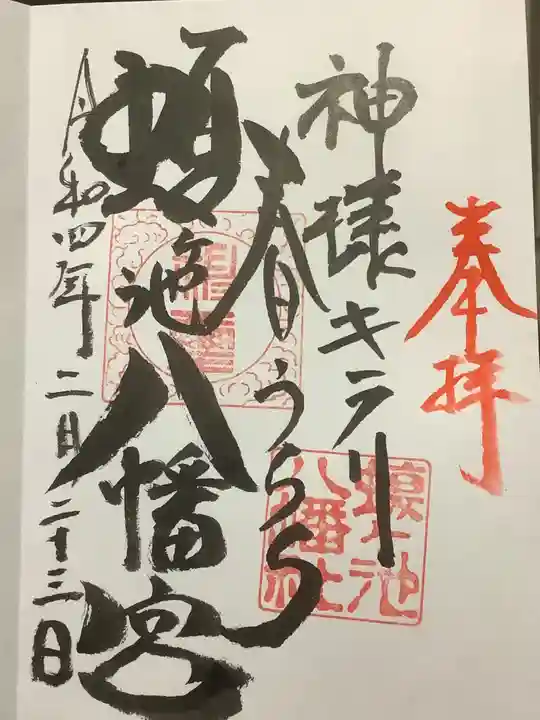 奉拝
神様キラリ
春日うらら
蝦ヶ池八幡宮
令和四年二月二十三日
八幡社